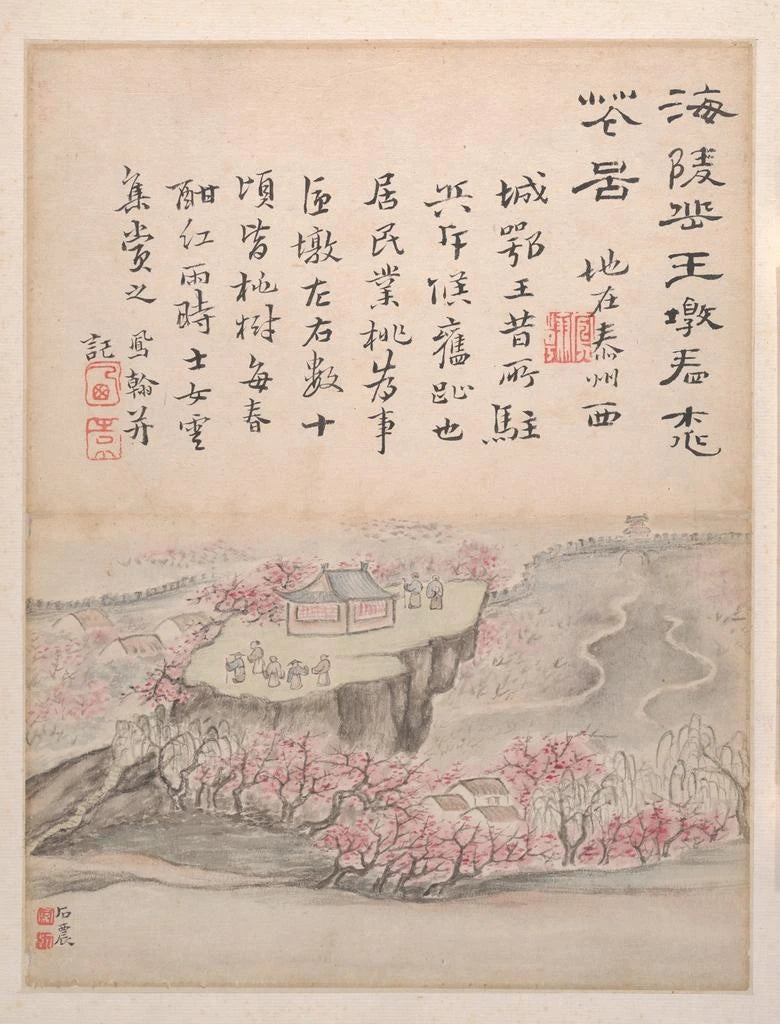 海陵岳王墩看桃
花圖 地在泰州西
城鄂王昔所駐
兵斥候舊趾也
居民業桃為事
墩左右數十
頃皆桃樹每春
酣紅雨時士女雲
集賞之 鳳翰并
記
石震